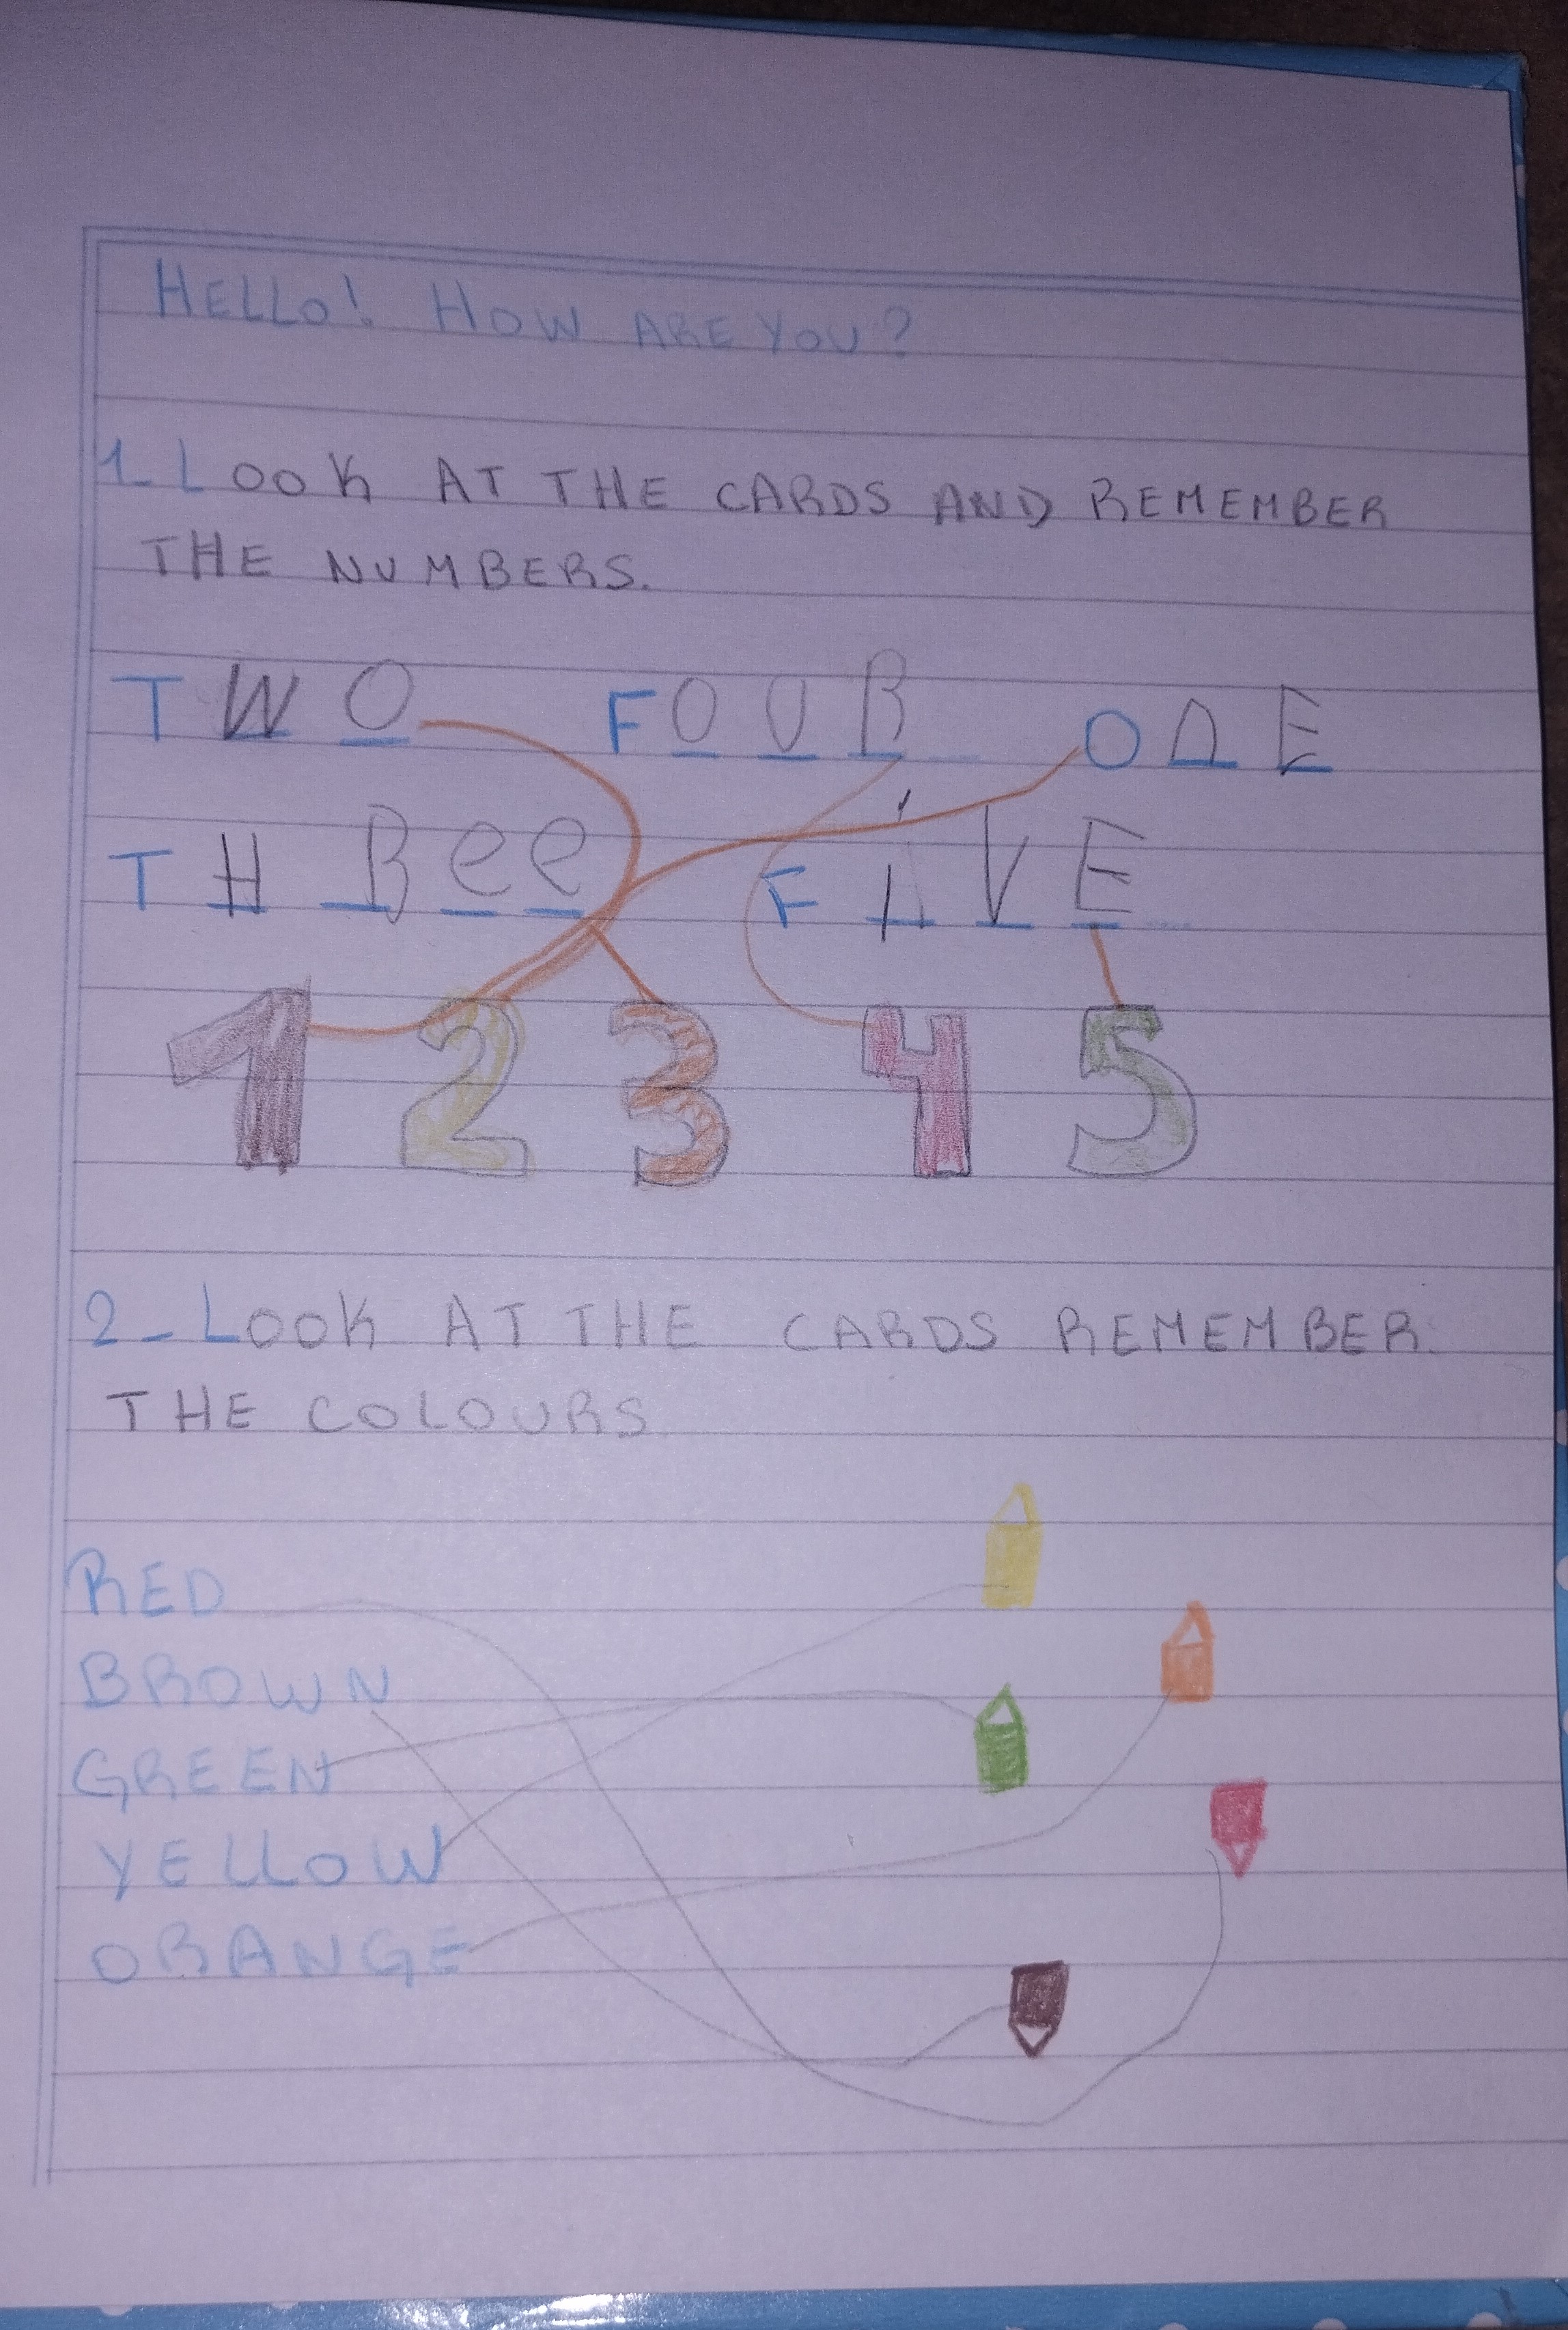 HELLO! HOW ARE YOU?
1_ LOOK AT THE CARDS AND REMEMBER
THE NUMBERS.
TWO FOUR ONE
THRee FiVE
1 2 3 4 5
2_ LOOK AT THE CARDS REMEMBER
THE COLOURS
RED
BROWN
GREEN
YELLOW
ORANGE